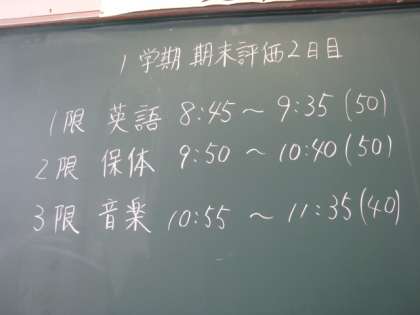 1学期 期末評価2日目
1限 英語 8:45 ～ 9:35 (50)
2限 保体 9:50 ～ 10:40 (50)
3限 音楽 10:55 ～ 11:35 (40)